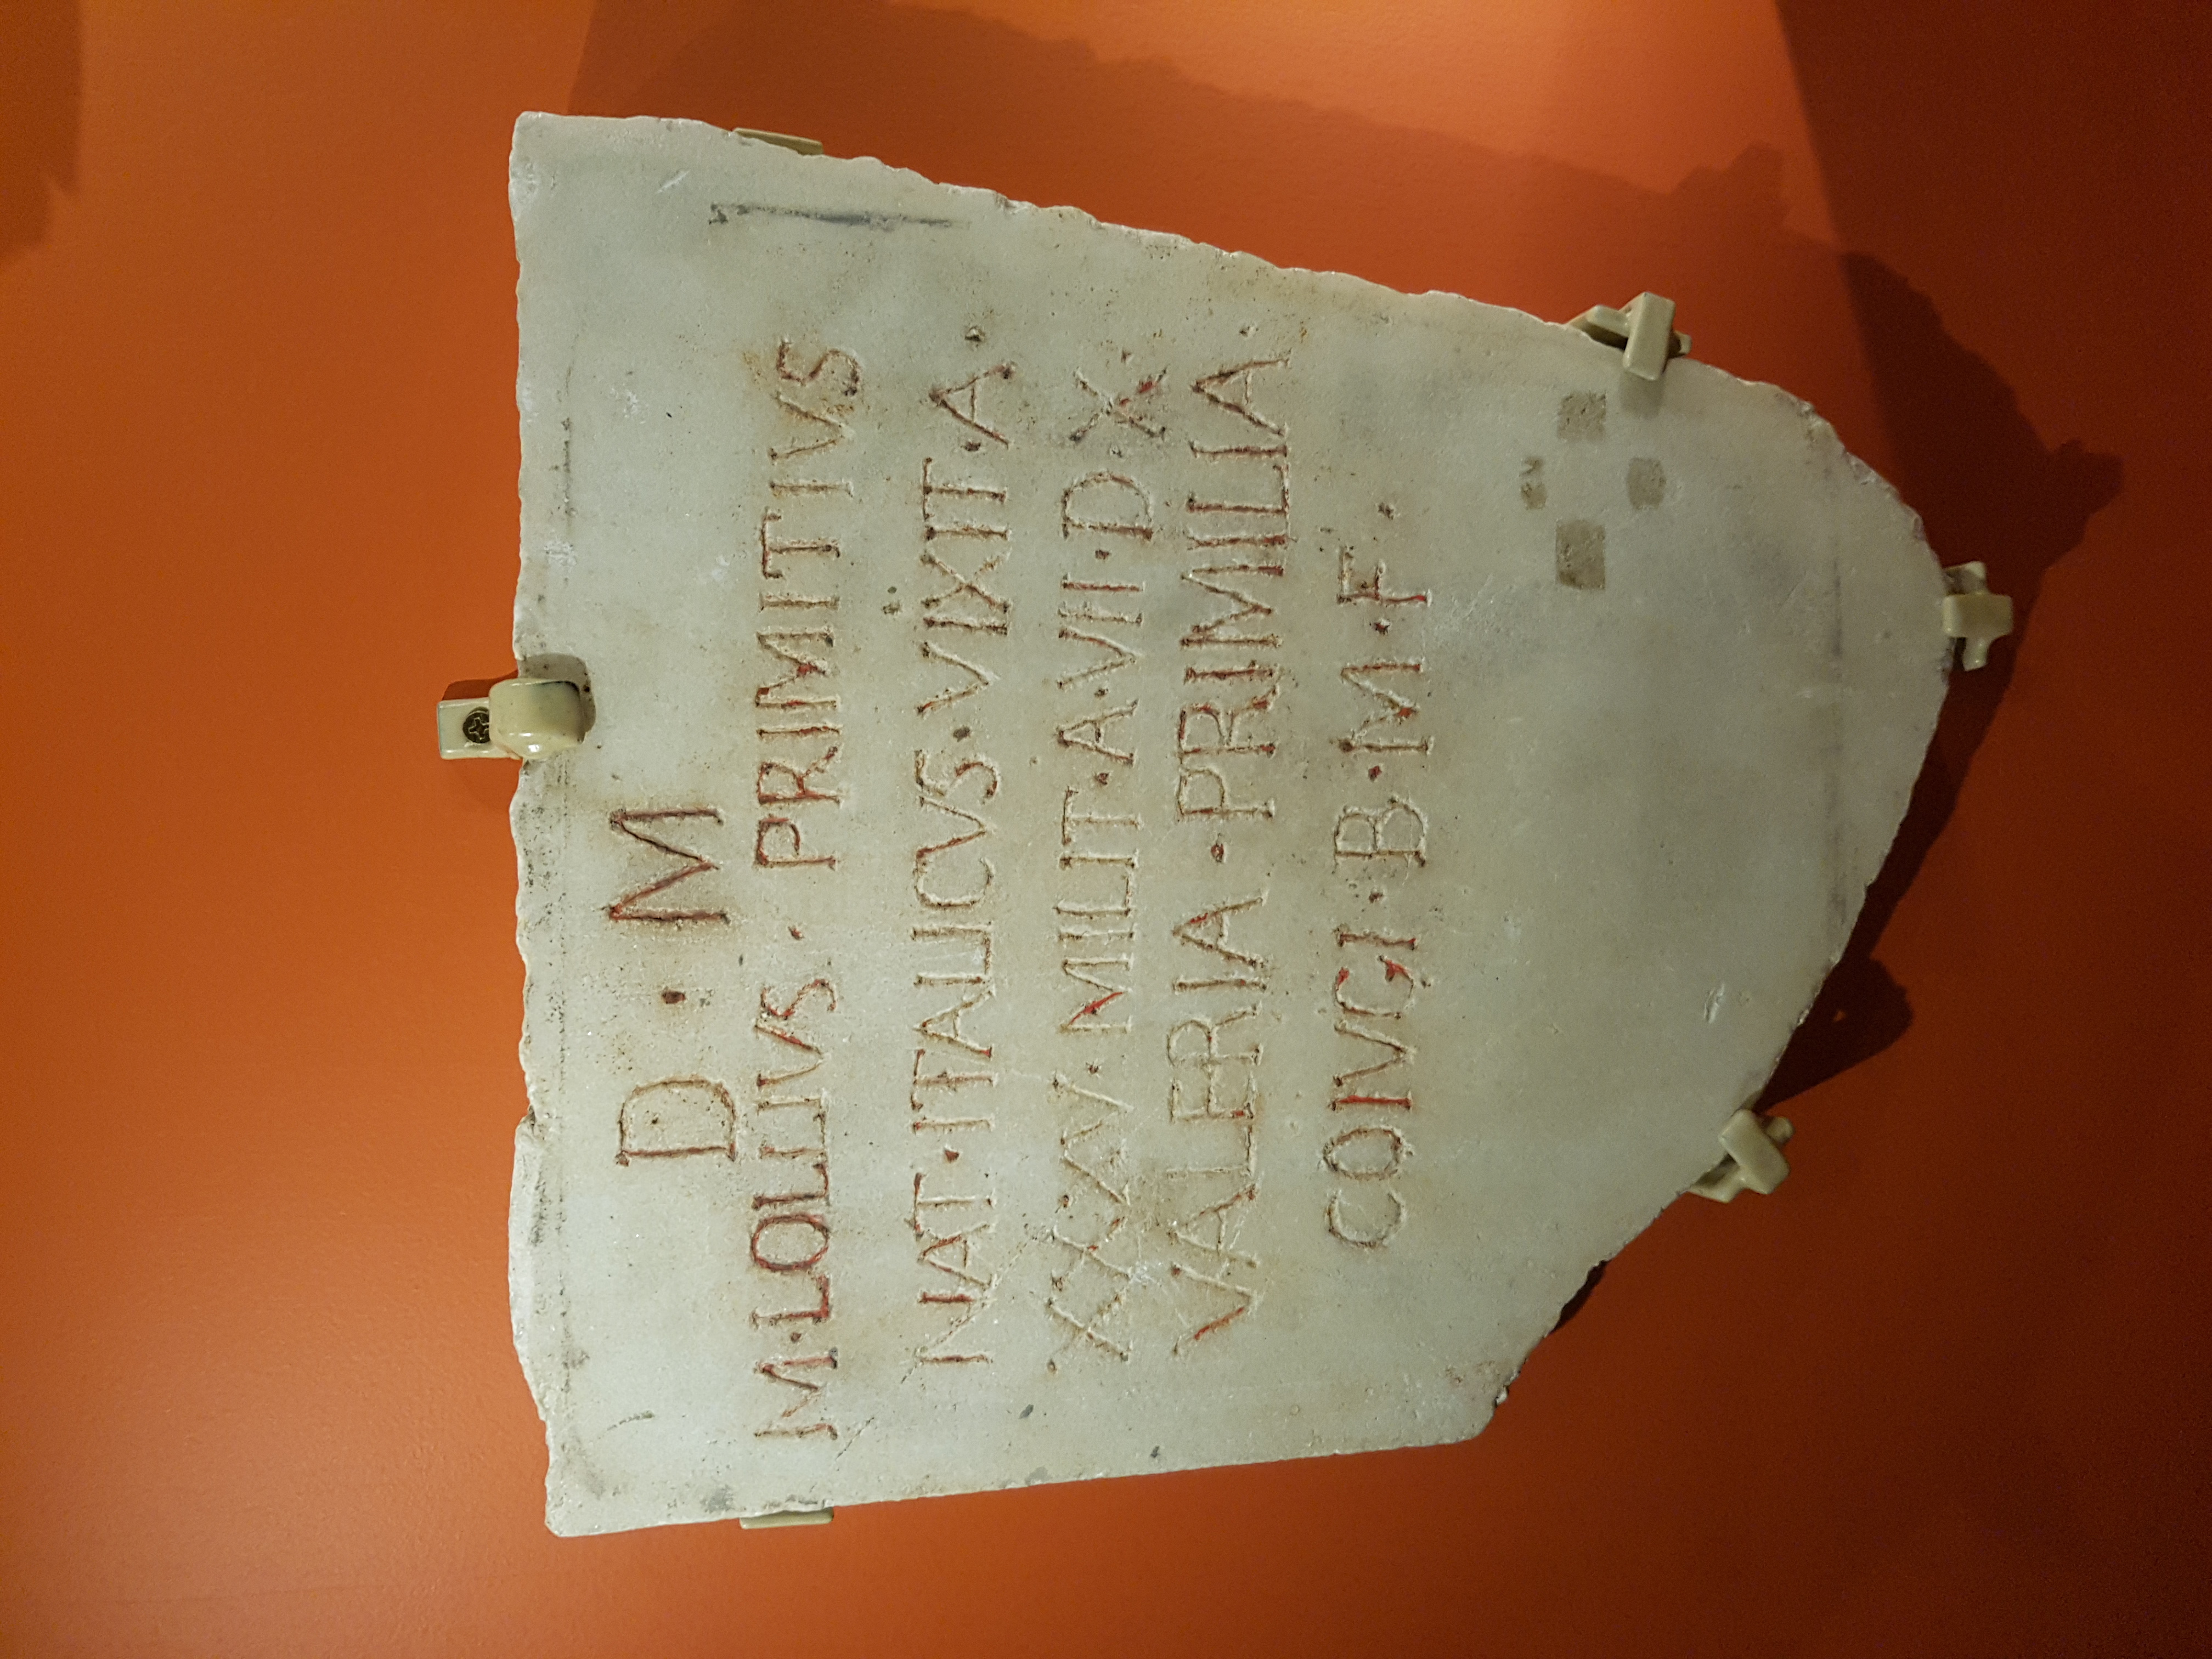 D · M
M · LOLLIVS · PRIMITIVS
NAT · ITALICVS · VIXIT · A ·
XXXV · MILIT · A · VII · D · X ·
VALERIA · PRIMILIA ·
CONIVGI · B · M · F ·